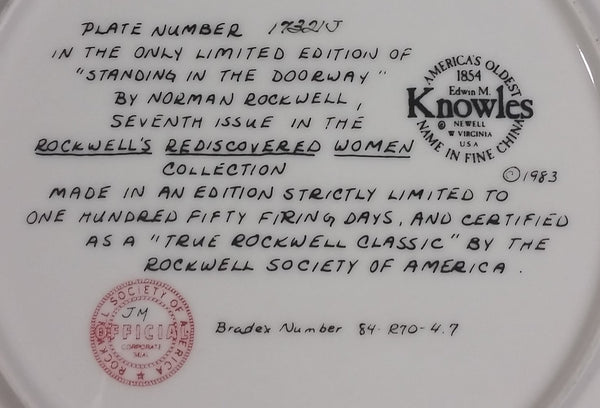 PLATE NUMBER 17321J
IN THE ONLY LIMITED EDITION OF
"STANDING IN THE DOORWAY"
BY NORMAN ROCKWELL,
SEVENTH ISSUE IN THE
ROCKWELL'S REDISCOVERED WOMEN
COLLECTION
MADE IN AN EDITION STRICTLY LIMITED TO
ONE HUNDRED FIFTY FIRING DAYS, AND CERTIFIED
AS A "TRUE ROCKWELL CLASSIC" BY THE
ROCKWELL SOCIETY OF AMERICA.
AMERICA'S OLDEST
1854
Edwin M.
Knowles
®
NEWELL
W VIRGINIA
U.S.A
NAME IN FINE CHINA
©1983
ROCKWELL SOCIETY OF AMERICA
JM
OFFICIAL
CORPORATE
SEAL
Bradex Number 84-R70-4.7